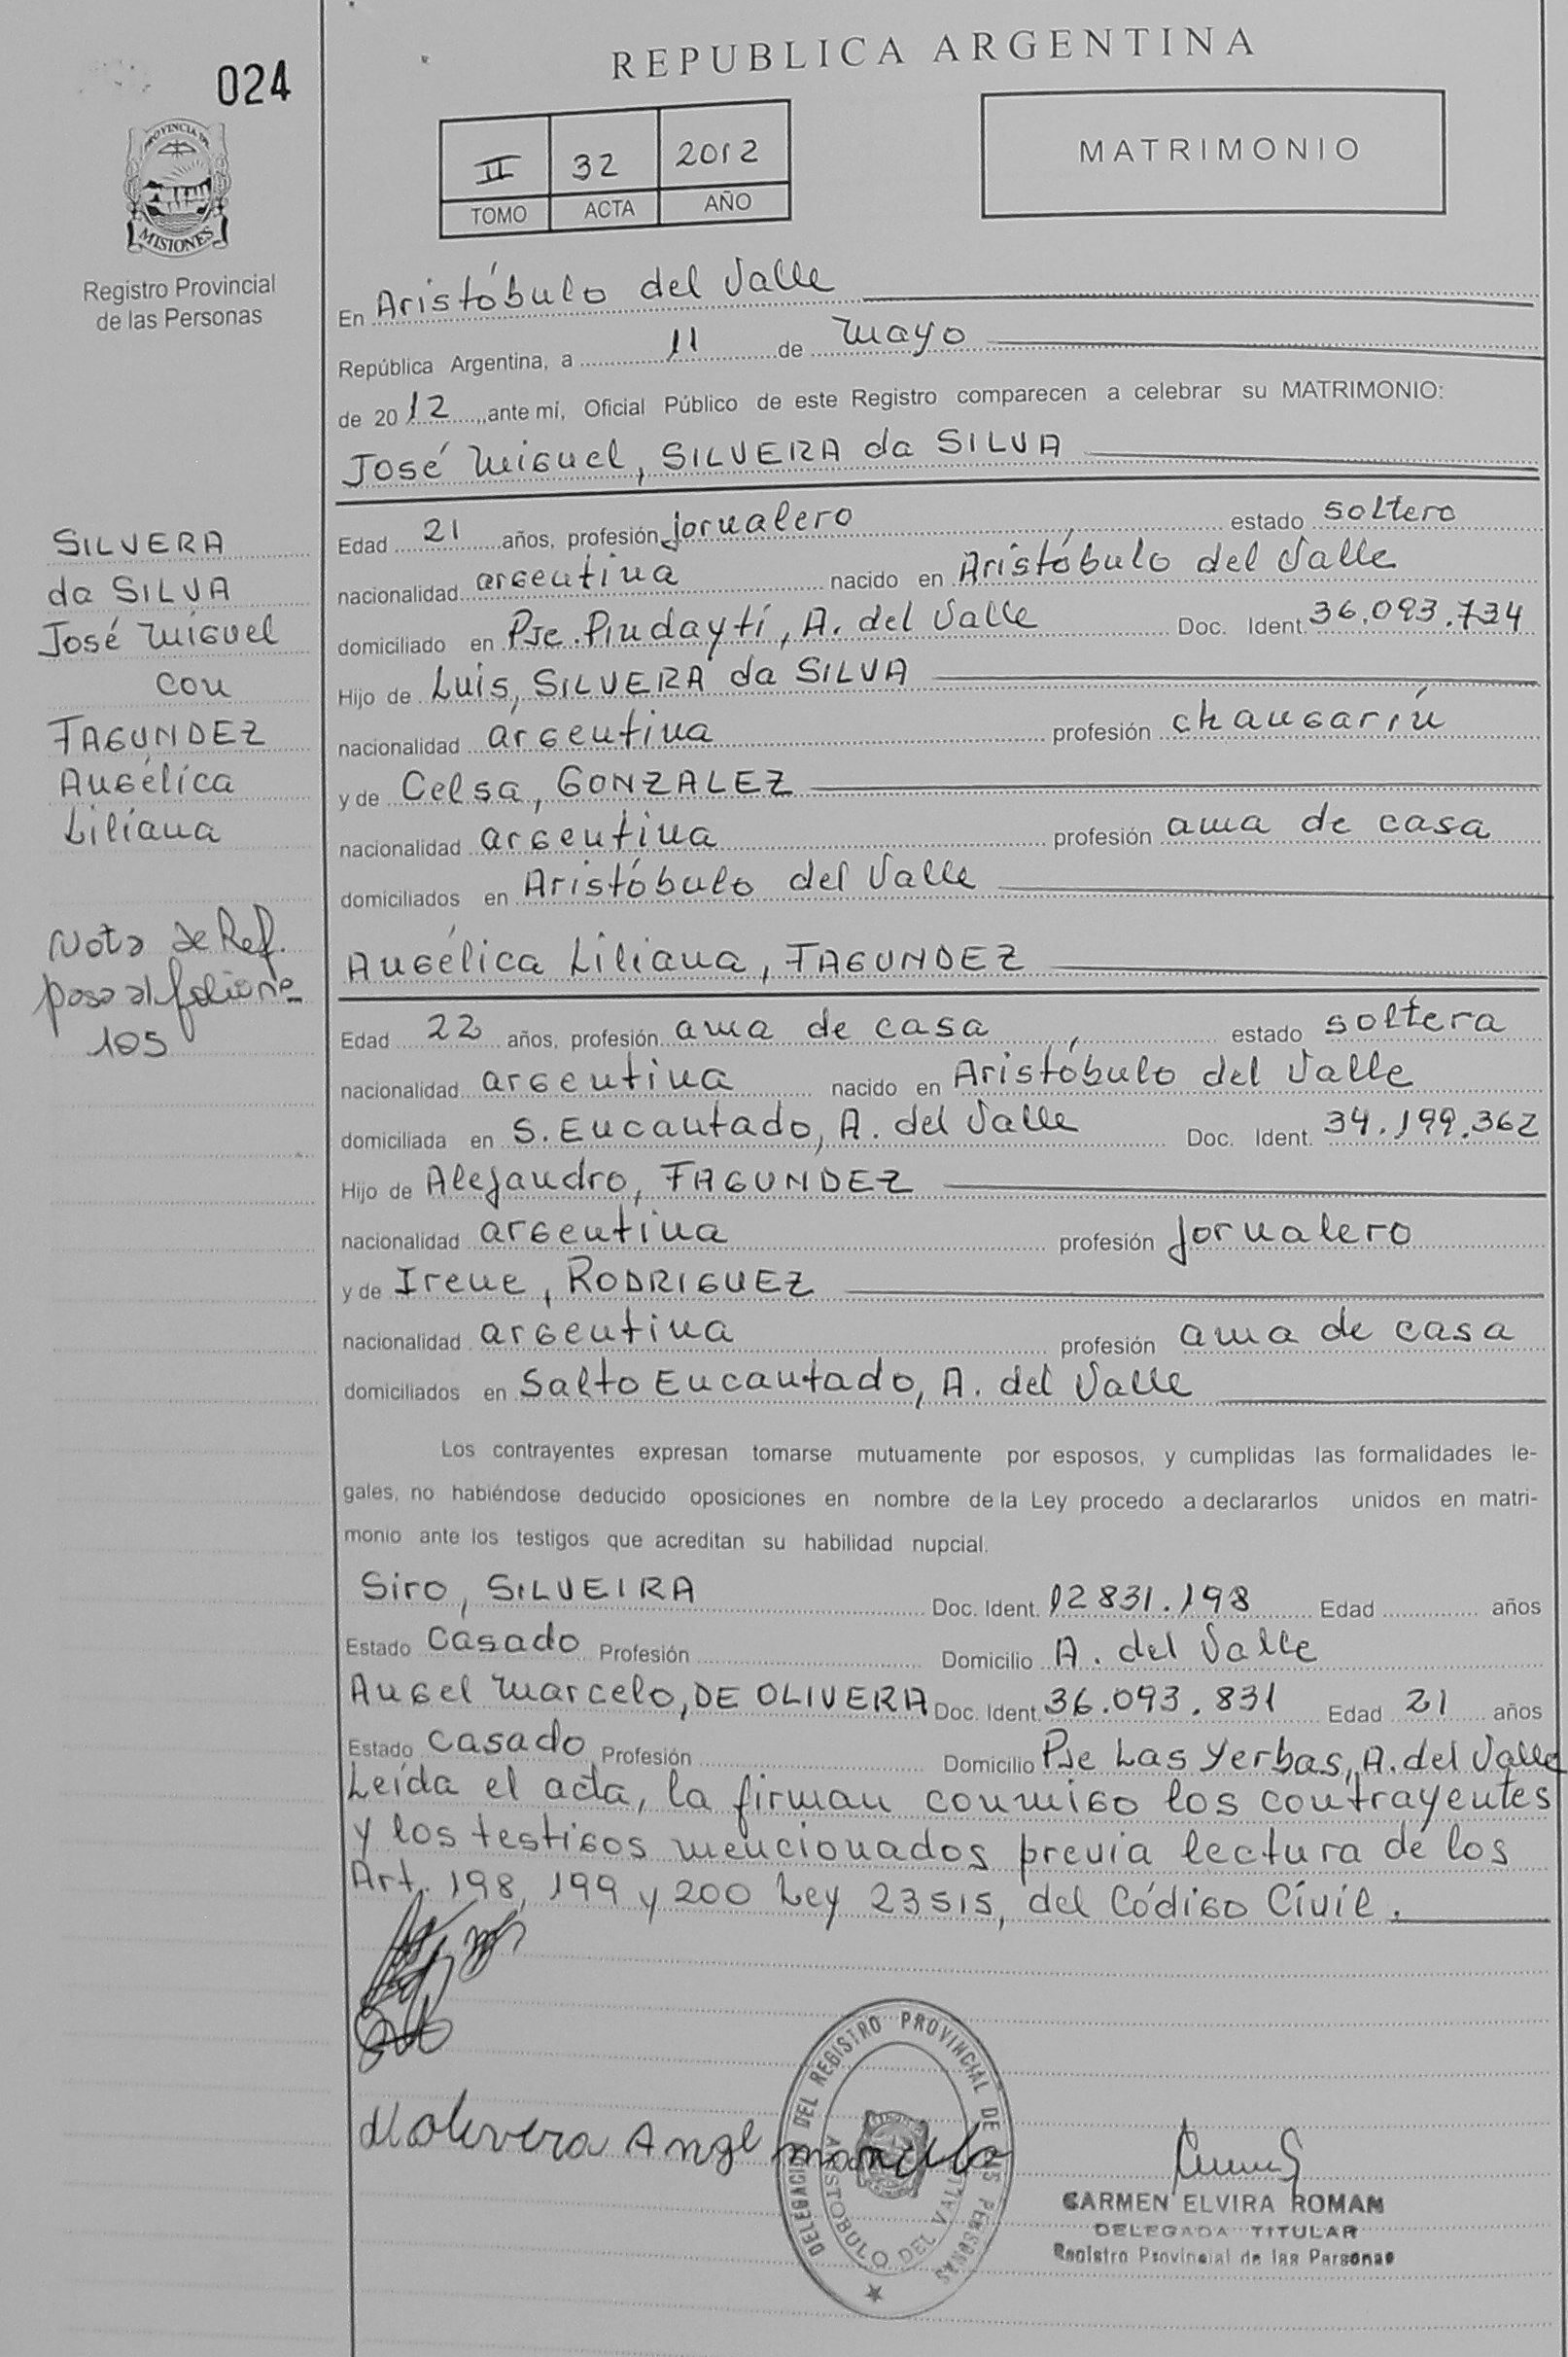 024
PROVINCIA DE
MISIONES
Registro Provincial
de las Personas
REPUBLICA ARGENTINA
II 32 2012
TOMO ACTA AÑO
MATRIMONIO
En Aristóbulo del Valle
República Argentina, a 11 de Mayo
de 2012, ante mí, Oficial Público de este Registro comparecen a celebrar su MATRIMONIO:
José Miguel, SILVERA da SILVA
Edad 21 años, profesión jornalero estado soltero
nacionalidad argentina nacido en Aristóbulo del Valle
domiciliado en Pje. Pindaytí, A. del Valle Doc. Ident. 36.093.734
Hijo de Luis, SILVERA da SILVA
nacionalidad argentina profesión changarín
y de Celsa, GONZALEZ
nacionalidad argentina profesión ama de casa
domiciliados en Aristóbulo del Valle
Angélica Liliana, FAGUNDEZ
Edad 22 años, profesión ama de casa estado soltera
nacionalidad argentina nacido en Aristóbulo del Valle
domiciliada en S. Encantado, A. del Valle Doc. Ident. 34.199.362
Hijo de Alejandro, FAGUNDEZ
nacionalidad argentina profesión jornalero
y de Irene, RODRIGUEZ
nacionalidad argentina profesión ama de casa
domiciliados en Salto Encantado, A. del Valle
Los contrayentes expresan tomarse mutuamente por esposos, y cumplidas las formalidades le-
gales, no habiéndose deducido oposiciones en nombre de la Ley procedo a declararlos unidos en matri-
monio ante los testigos que acreditan su habilidad nupcial.
Siro, SILVEIRA Doc. Ident. 12831.198 Edad años
Estado Casado Profesión Domicilio A. del Valle
Angel Marcelo, DE OLIVERA Doc. Ident. 36.093.831 Edad 21 años
Estado Casado Profesión Domicilio Pje Las Yerbas, A. del Valle
Leída el acta, la firman conmigo los contrayentes
y los testigos mencionados previa lectura de los
Art. 198, 199 y 200 Ley 23515, del Código Civil.
SILVERA
da SILVA
José Miguel
con
FAGUNDEZ
Angélica
Liliana
Nota de Ref.
pasa al folio nº
105
DELEGACION DEL REGISTRO PROVINCIAL DE LAS PERSONAS
ARISTOBULO DEL VALLE
CARMEN ELVIRA ROMAN
DELEGADA TITULAR
Registro Provincial de las Personas